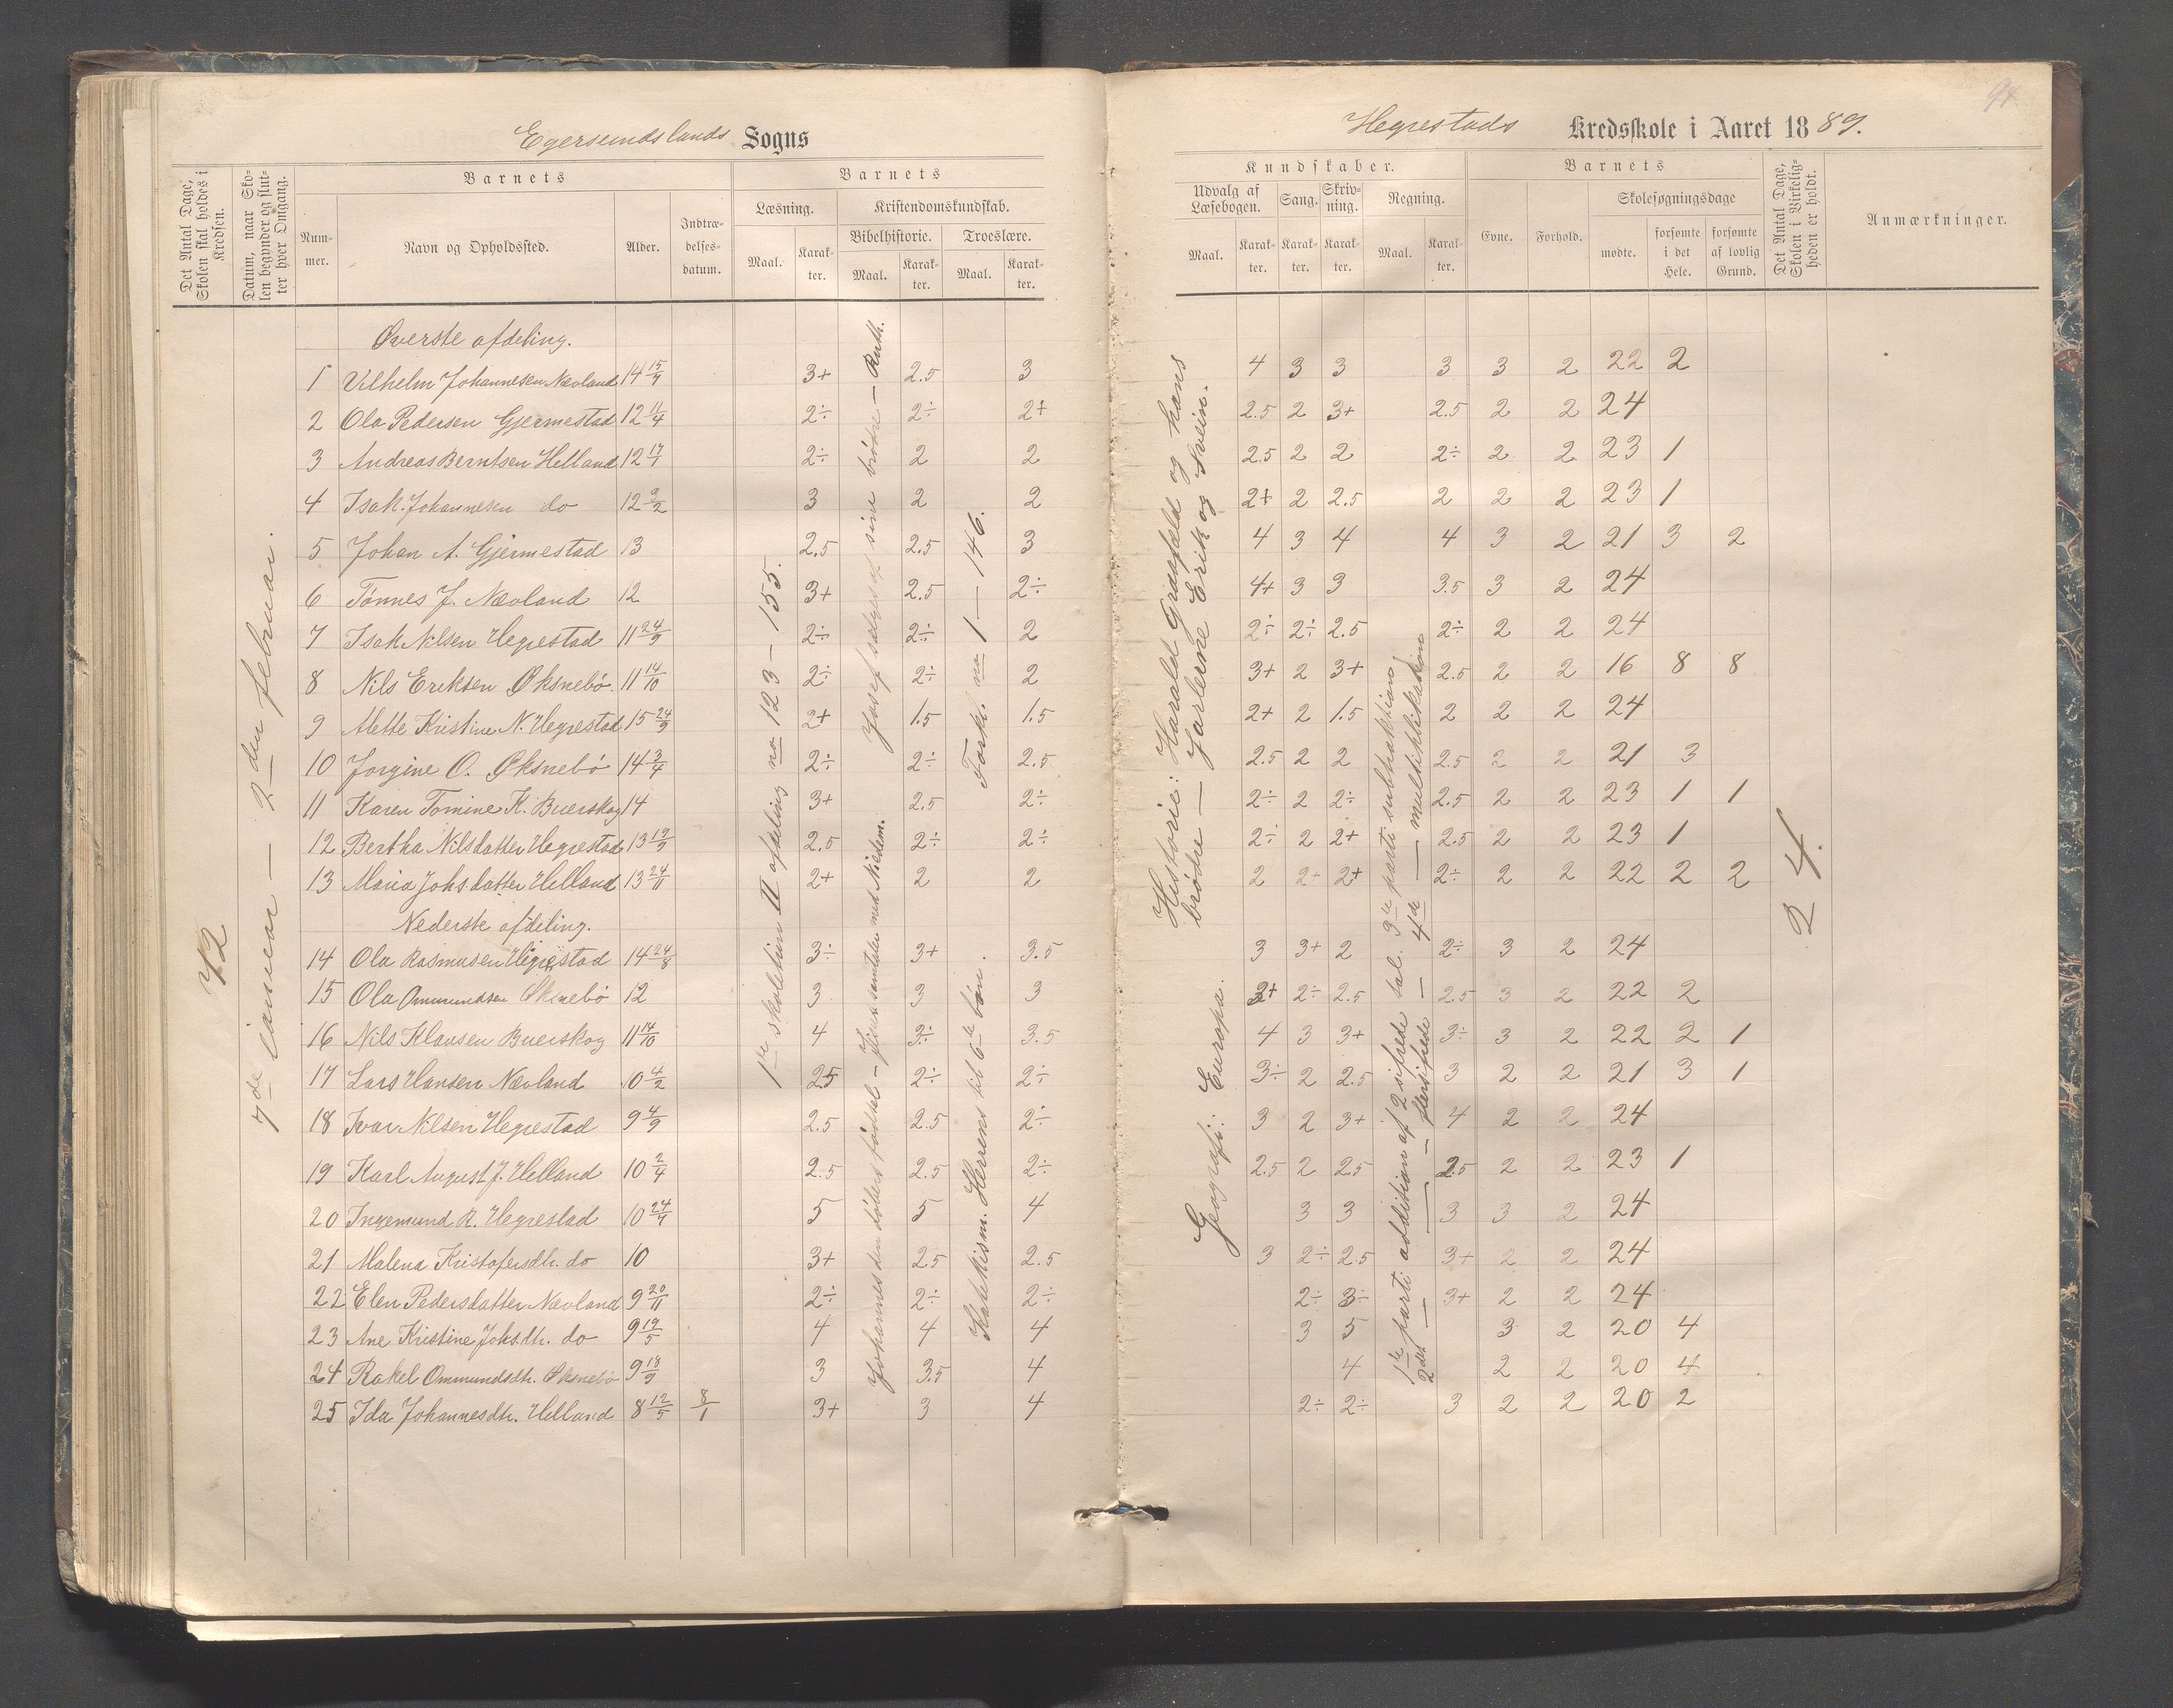 Egersundslands Sogns
Det Antal Dage, Skolen skal holdes i Kredsen.
Datum, naar Skolen begynder og slutter hver Omgang.
Barnets
Nummer.
Navn og Opholdssted.
Alder.
Indtrædelsesdatum.
Barnets
Læsning.
Maal.
Karakter.
Kristendomskundskab.
Bibelhistorie.
Maal.
Karakter.
Troeslære.
Maal.
Karakter.
72
7de januar — 2den februar.
1ste skoletrin II afdeling no 123 — 155.
Josef sælges af sine brødre — Ruth.
Johannes den døbers fødsel — Jesu samtale med Nicodem.
Forkl. no 1 — 146.
Katekism. Herrens til 6te bøn.
Øverste afdeling.
1 Vilhelm Johannesen Nævland 14 15/9 3+ 2.5 3
2 Ola Pedersen Gjermestad 12 11/4 2÷ 2÷ 2+
3 Andreas Berntsen Helland 12 17/1 2÷ 2 2
4 Isak Johannesen do 12 2/2 3 2 2
5 Johan A. Gjermestad 13 2.5 2.5 3
6 Tønnes J. Nævland 12 3+ 2.5 2÷
7 Isak Nilsen Hegrestad 11 24/9 2÷ 2÷ 2
8 Nils Eriksen Øksnebø. 11 14/10 2÷ 2÷ 2
9 Mette Kristine N. Hegrestad 15 24/9 2+ 1.5 1.5
10 Jorgine O. Øksnebø 14 3/4 2÷ 2÷ 2.5
11 Karen Tomine K. Buerskog 14 3+ 2.5 2÷
12 Bertha Nilsdatter Hegrestad 13 19/9 2.5 2÷ 2÷
13 Maria Johs.datter Helland 13 24/11 2+ 2 2
Nederste afdeling.
14 Ola Rasmusen Hegrestad 14 24/8 3÷ 3+ 3.5
15 Ola Ommundsen Øksnebø 12 3 3 3
16 Nils Klausen Buerskog 11 14/10 4 3÷ 3.5
17 Lars Hansen Nævland 10 4/2 2.5 2÷ 2÷
18 Ivar Nilsen Hegrestad 9 4/9 2.5 2.5 2÷
19 Karl August J. Helland 10 2/4 2.5 2.5 2÷
20 Ingemund R. Hegrestad 10 24/7 5 5 4
21 Malena Kristofersdtr. do 10 3+ 2.5 2.5
22 Elen Pedersdatter Nævland 9 20/11 2÷ 2÷ 2÷
23 Ane Kristine Johs.dtr. do 9 19/5 4 4 4
24 Rakel Ommundsdtr. Øksnebø 9 18/9 3 3.5 4
25 Ida Johannesdtr. Helland 8 12/5 8/1 3+ 3 4
94
Hegrestads Kredsskole i Aaret 1889.
Kundskaber.
Udvalg af Læsebogen.
Maal.
Karakter.
Sang.
Karakter.
Skrivning.
Karakter.
Regning.
Maal.
Karakter.
Barnets
Evne.
Forhold.
Skolesøgningsdage
mødte.
forsømte i det Hele.
forsømte af lovlig Grund.
Det Antal Dage, Skolen i Virkeligheden er holdt.
Anmærkninger.
Historie: Harald Gråfeld og hans
brødre — Jarlerne Erik og Svein.
Geografi: Europa.
1ste parti addition af 2 sifrede tal. 3die parti subtraktion
2det — — — flersifrede — 4de — multiplikation
24.
4 3 3 3 3 2 22 2
2.5 2 3+ 2.5 2 2 24
2.5 2 2 2÷ 2 2 23 1
2+ 2 2.5 2 2 2 23 1
4 3 4 4 3 2 21 3 2
4+ 3 3 3.5 3 2 24
2÷ 2÷ 2.5 2÷ 2 2 24
3+ 2 3+ 2.5 2 2 16 8 8
2+ 2 1.5 2 2 2 24
2.5 2 2 2.5 2 2 21 3
2÷ 2 2÷ 2.5 2 2 23 1 1
2÷ 2 2+ 2.5 2 2 23 1
2 2+ 2+ 2÷ 2 2 22 2 2
3 3+ 2 2÷ 3 2 24
3+ 2÷ 2.5 2.5 3 2 22 2
4 3 3+ 3÷ 3 2 22 2 1
3÷ 2 2.5 3 2 2 21 3 1
3 2 3+ 4 2 2 24
2.5 2 2.5 2.5 2 2 23 1
3 3 3 3 2 24
3 2÷ 2.5 3+ 2 2 24
2÷ 3÷ 3+ 2 2 24
3 5 3 2 20 4
4 2 2 20 4
2÷ 2÷ 3 2 2 20 2